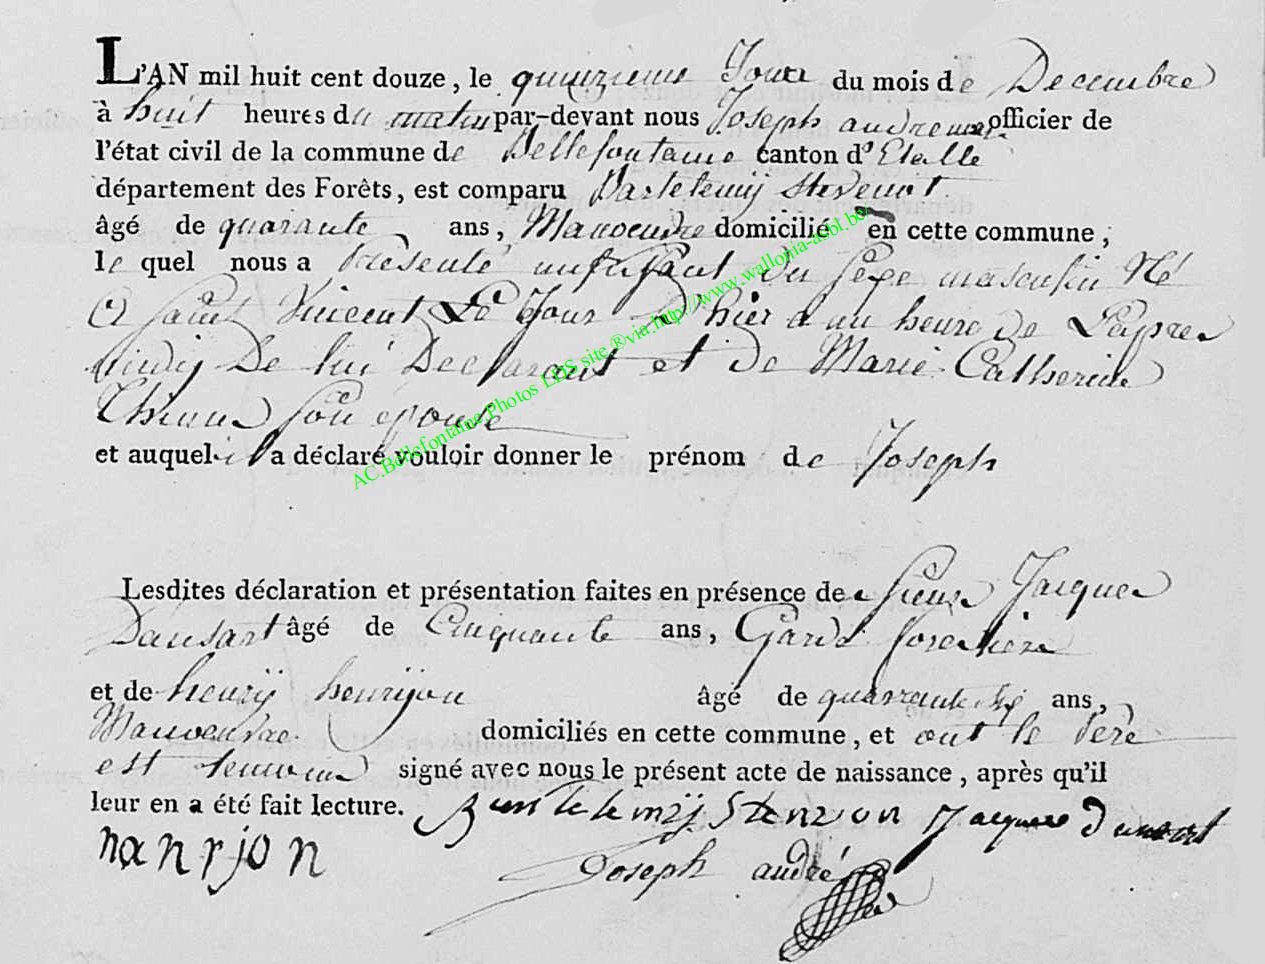 L'AN mil huit cent douze, le quinzieme Jour du mois de Decembre
à huit heures du matin par-devant nous Joseph andre officier de
l'état civil de la commune de Bellefontaine canton d'Etalle
département des Forêts, est comparu Bartelemij Stevenot
âgé de quarante ans, Manoeuvre domicilié en cette commune,
le quel nous a presenté un enfant du sexe masculin Né
a saint Vincent Le Jour d'hier a un heure de L'apres
midij De lui Declarant et de Marie Catherine
son epouse
et auquel il a déclaré vouloir donner le prénom de Joseph
Lesdites déclaration et présentation faites en présence de sieur Jacques
Dansart âgé de Cinquante ans, Garde forestiere
et de henrij henrijon âgé de quarante six ans,
Manoeuvre domiciliés en cette commune, et ont le Père
est temoins signé avec nous le présent acte de naissance, après qu'il
leur en a été fait lecture. Jacques
hanrjon Joseph andré
AC.Bellefontaine Photos LDS site ®via:http://www.wallonia-asbl.be/